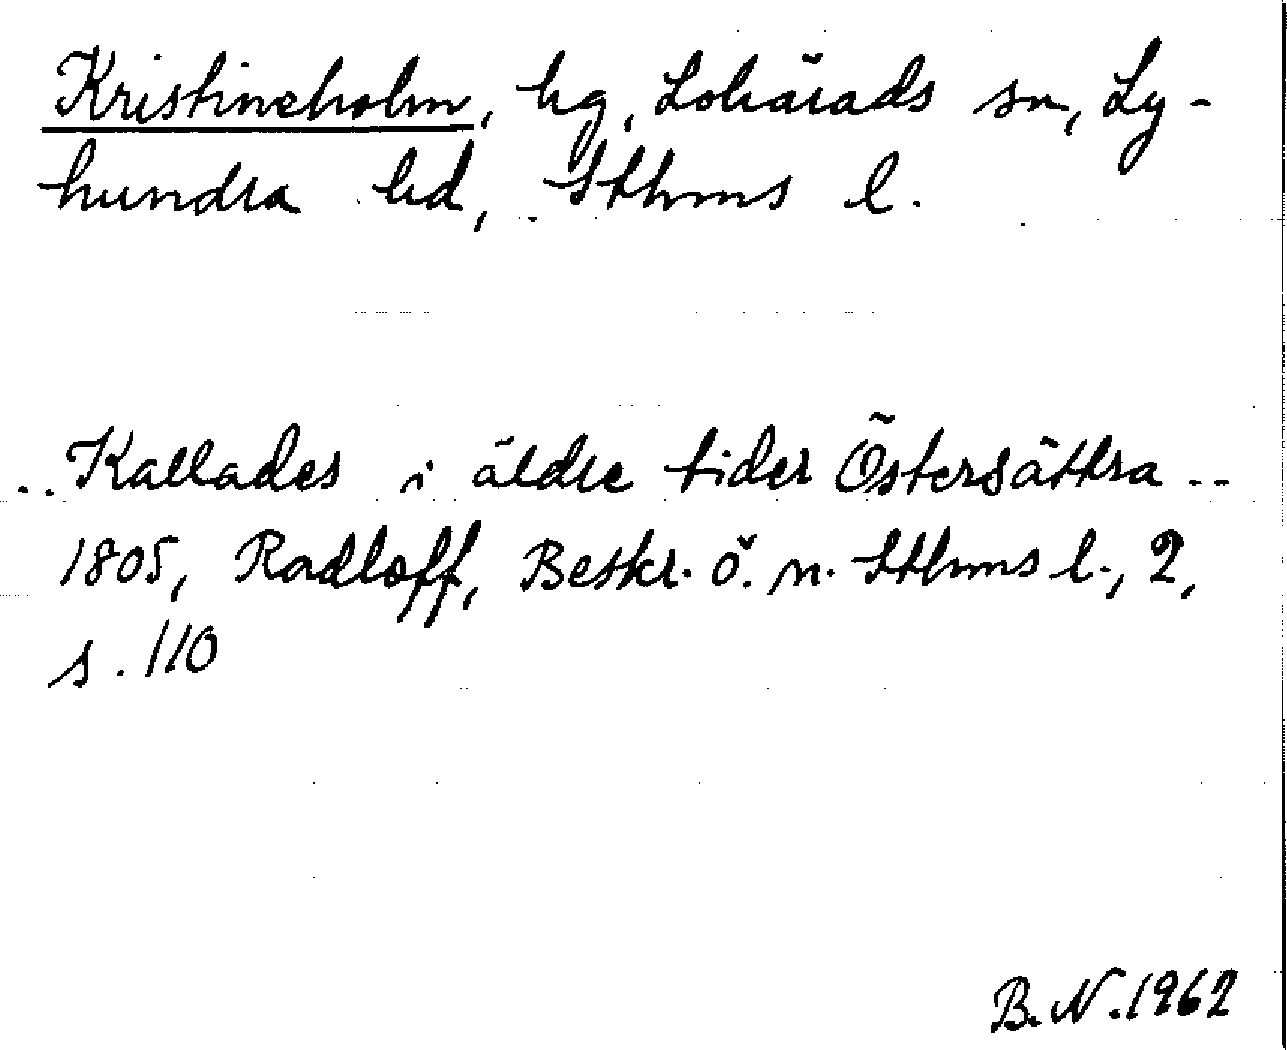 Kristineholm, hg, Lohärads sn, Ly-
hundra hd, Sthms l.
.. Kallades i äldre tider Östersättra --
1805, Radloff, Beskr. ö. n. Sthms l., 2,
s. 110
B. N. 1962